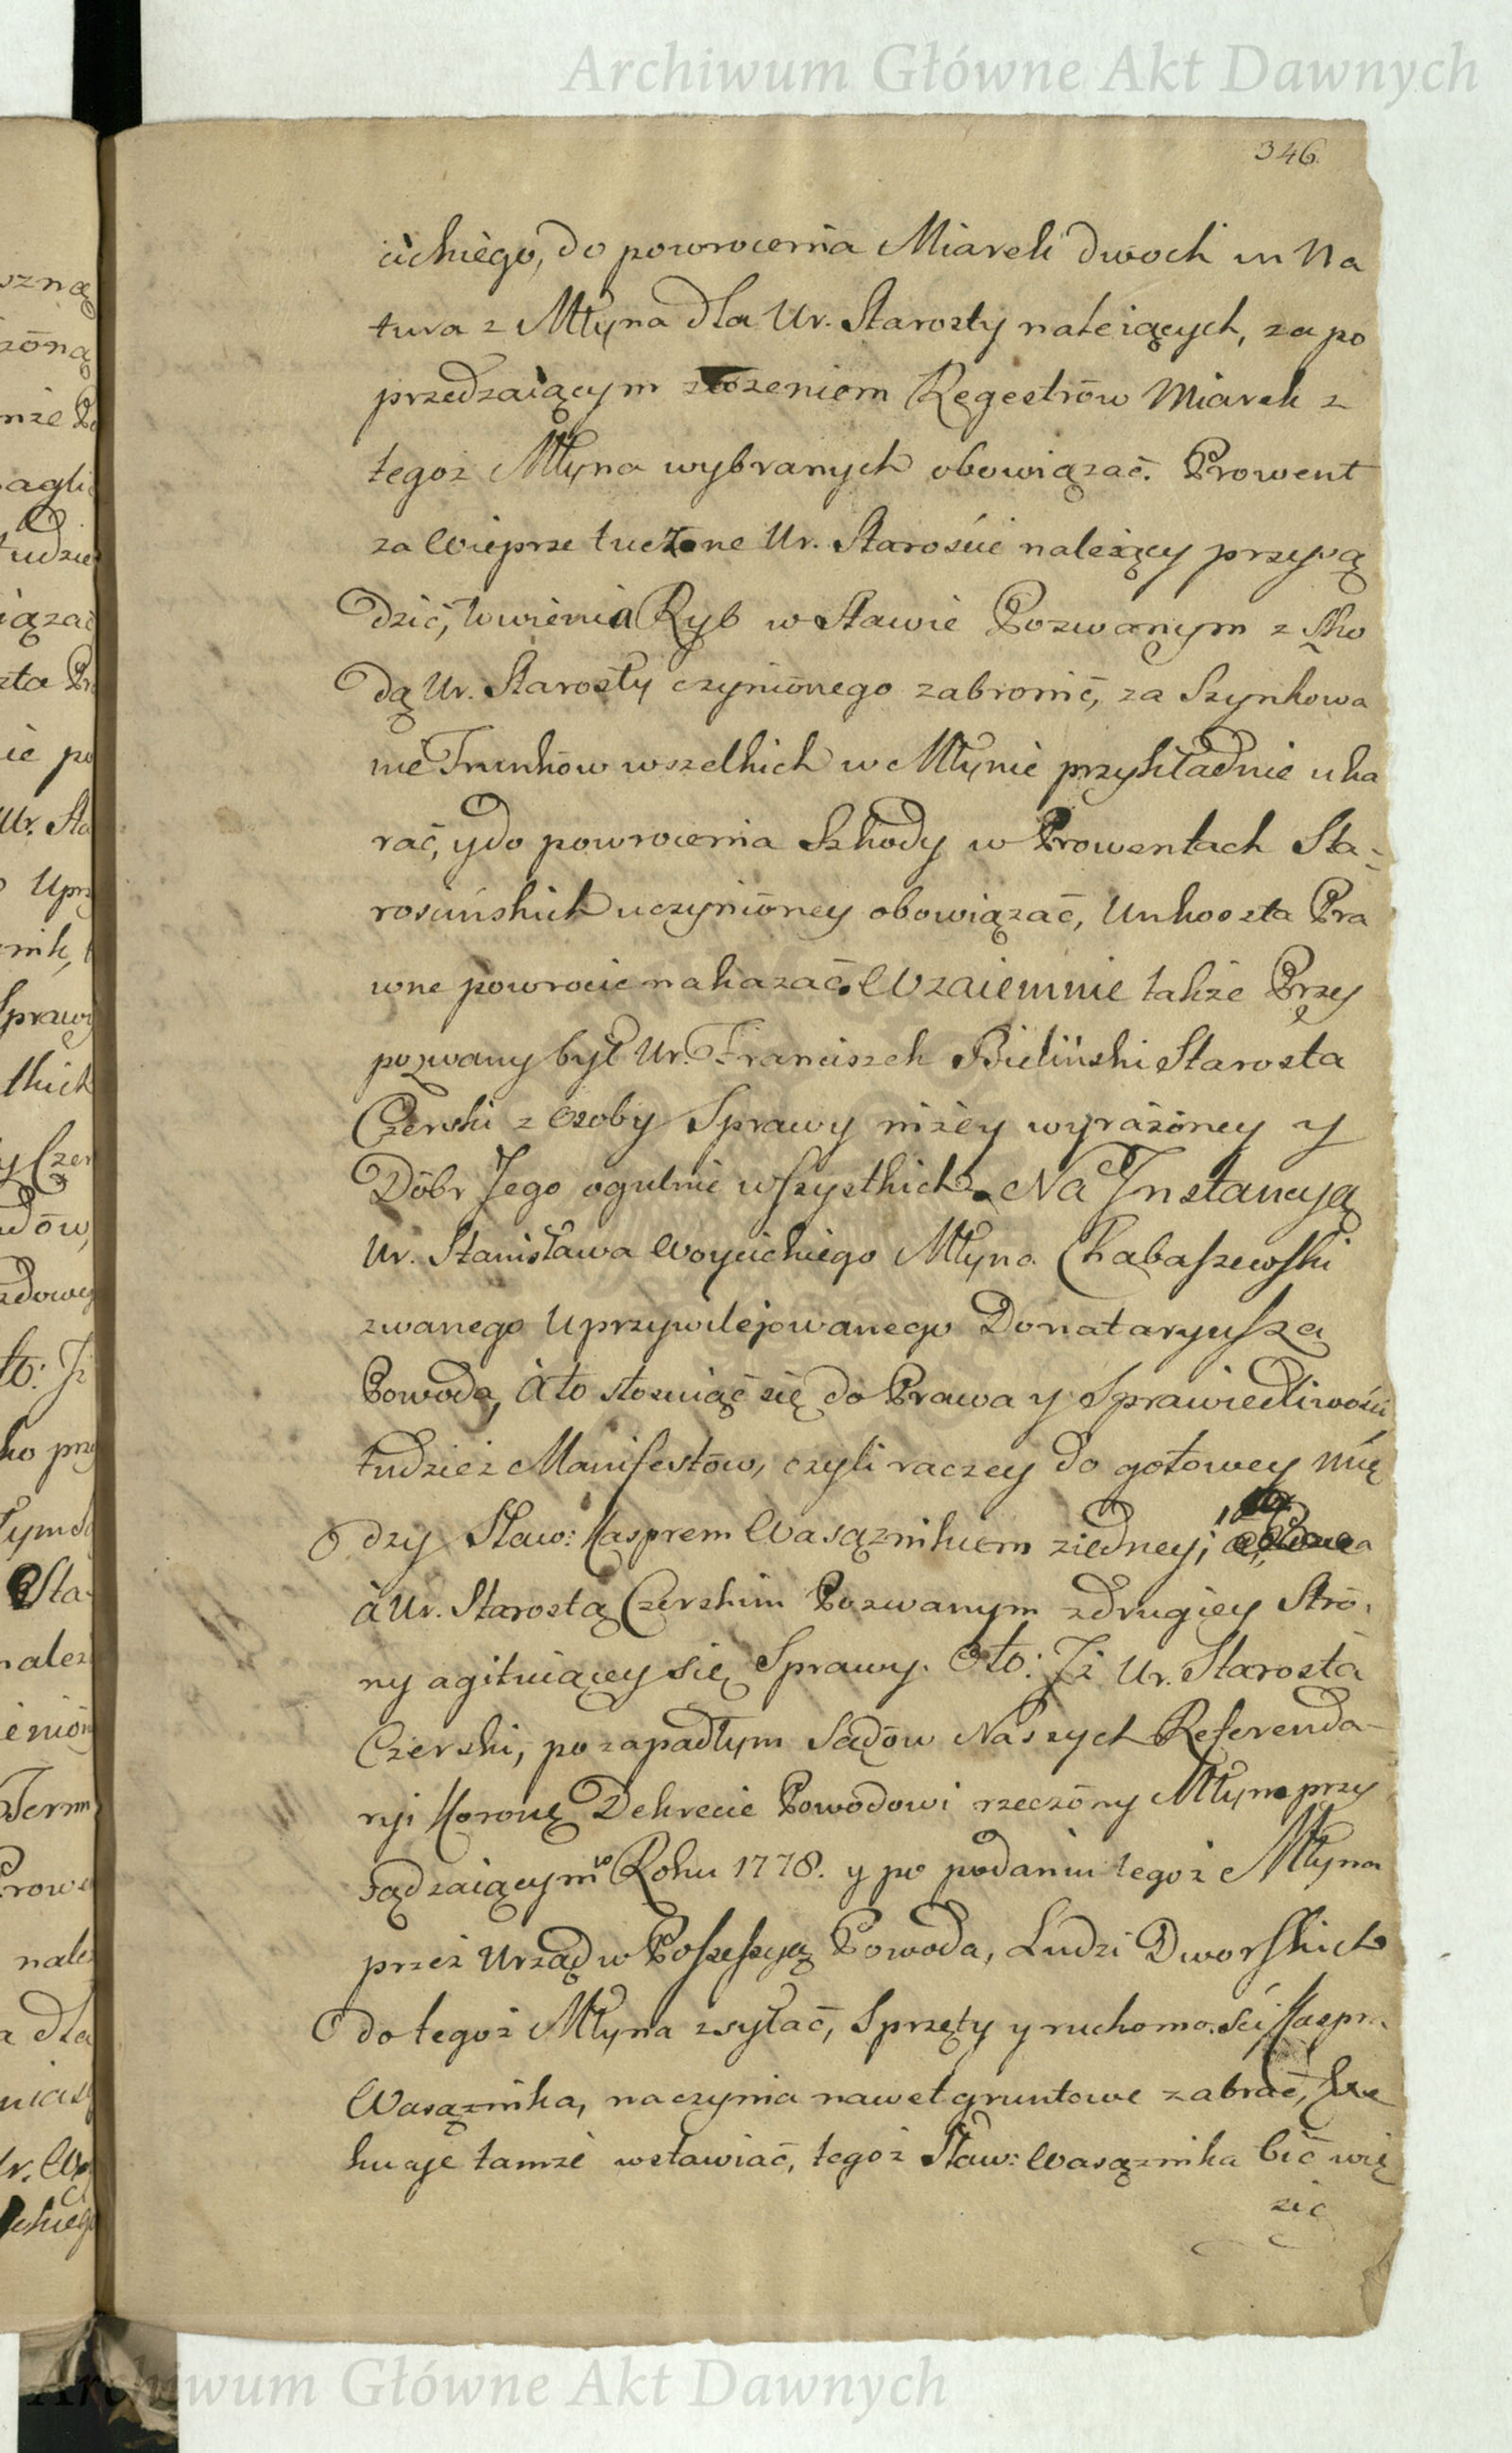 Archiwum Główne Akt Dawnych
346.
cickiego, do powrocenia Miarek dwoch in Na
tura z Młyna dla Ur. Starosty należących, za po
przedzaiącym złożeniem Regestrów Miarek z
tegoż Młyna wybranych obowiązać. Prowent
za Wieprze tuczone Ur. Staroście należący przysą
dzić, łowienia Ryb w Stawie Pozwanym z szko
dą Ur. Starosty czynionego zabronić, za Szynkowa
nie Trunków wszelkich w Młynie przykładnie uka
rać, y do powrocenia Szkody w Prowentach Sta-
rościńskich uczynioney obowiązać, Unkoszta Pra
wne powrocic nakazać. Wzaiemnie także Przy
pozwany był Ur. Franciszek Bieliński Starosta
Czerski z Osoby Sprawy niżey wyrażoney y
Dóbr Jego ogulnie wszystkich. Na Jnstancyą
Ur. Stanisława Woycickiego Młyna Chabaszewski
zwanego Uprzywilejowanego Donataryusza
Powoda, à to stosuiąc się do Prawa y Sprawiedliwości
tudzież Manifestów, czyli raczey do gotowey mię
dzy Sław: Kasprem Wasążnikiem z iedney,
à Ur. Starostą Czerskim Pozwanym z drugiey Stró,
ny agituiącey się Sprawy. Oto: Jż Ur. Starosta
Czerski, po zapadłym Sądów Naszych Referenda-
ryi Koronę Dekrecie Powodowi rzeczóny Młyn przy
sądzaiącym w Roku 1778. y po podaniu tegoż Młyna
przez Urząd w Possessyą Powoda, Ludzi Dworskich
do tegoż Młyna zsyłać, Sprzęty y ruchomości Kaspra
Wasążnika, naczynia nawet gruntowe zabrać, Exe
kucyje tamże wstawiać, tegoż Sław: Wasążnika bić wię
zić
Archiwum Główne Akt Dawnych